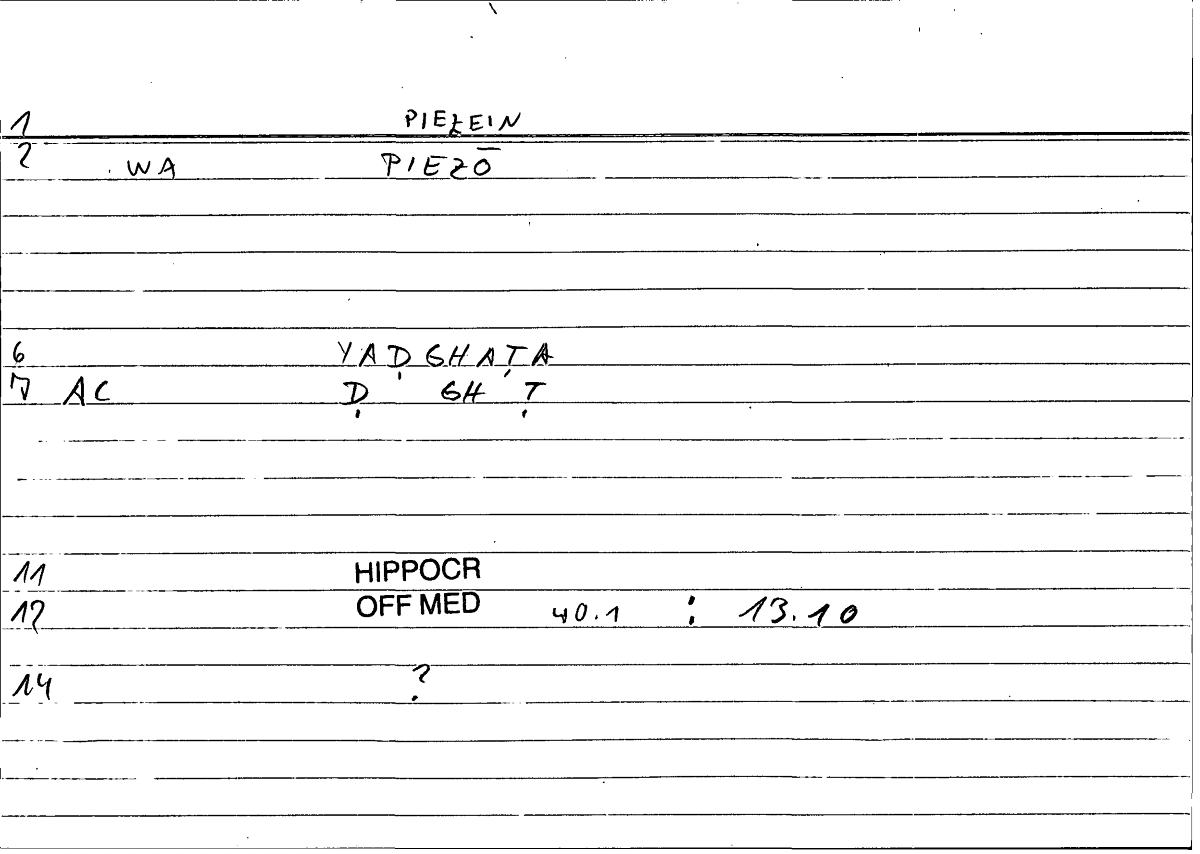 1 PIEZEIN
2 WA PIEZŌ
6 YAḌGHAṬA
7 AC Ḍ GH Ṭ
11 HIPPOCR
12 OFF MED 40.1 : 13.10
14 ?